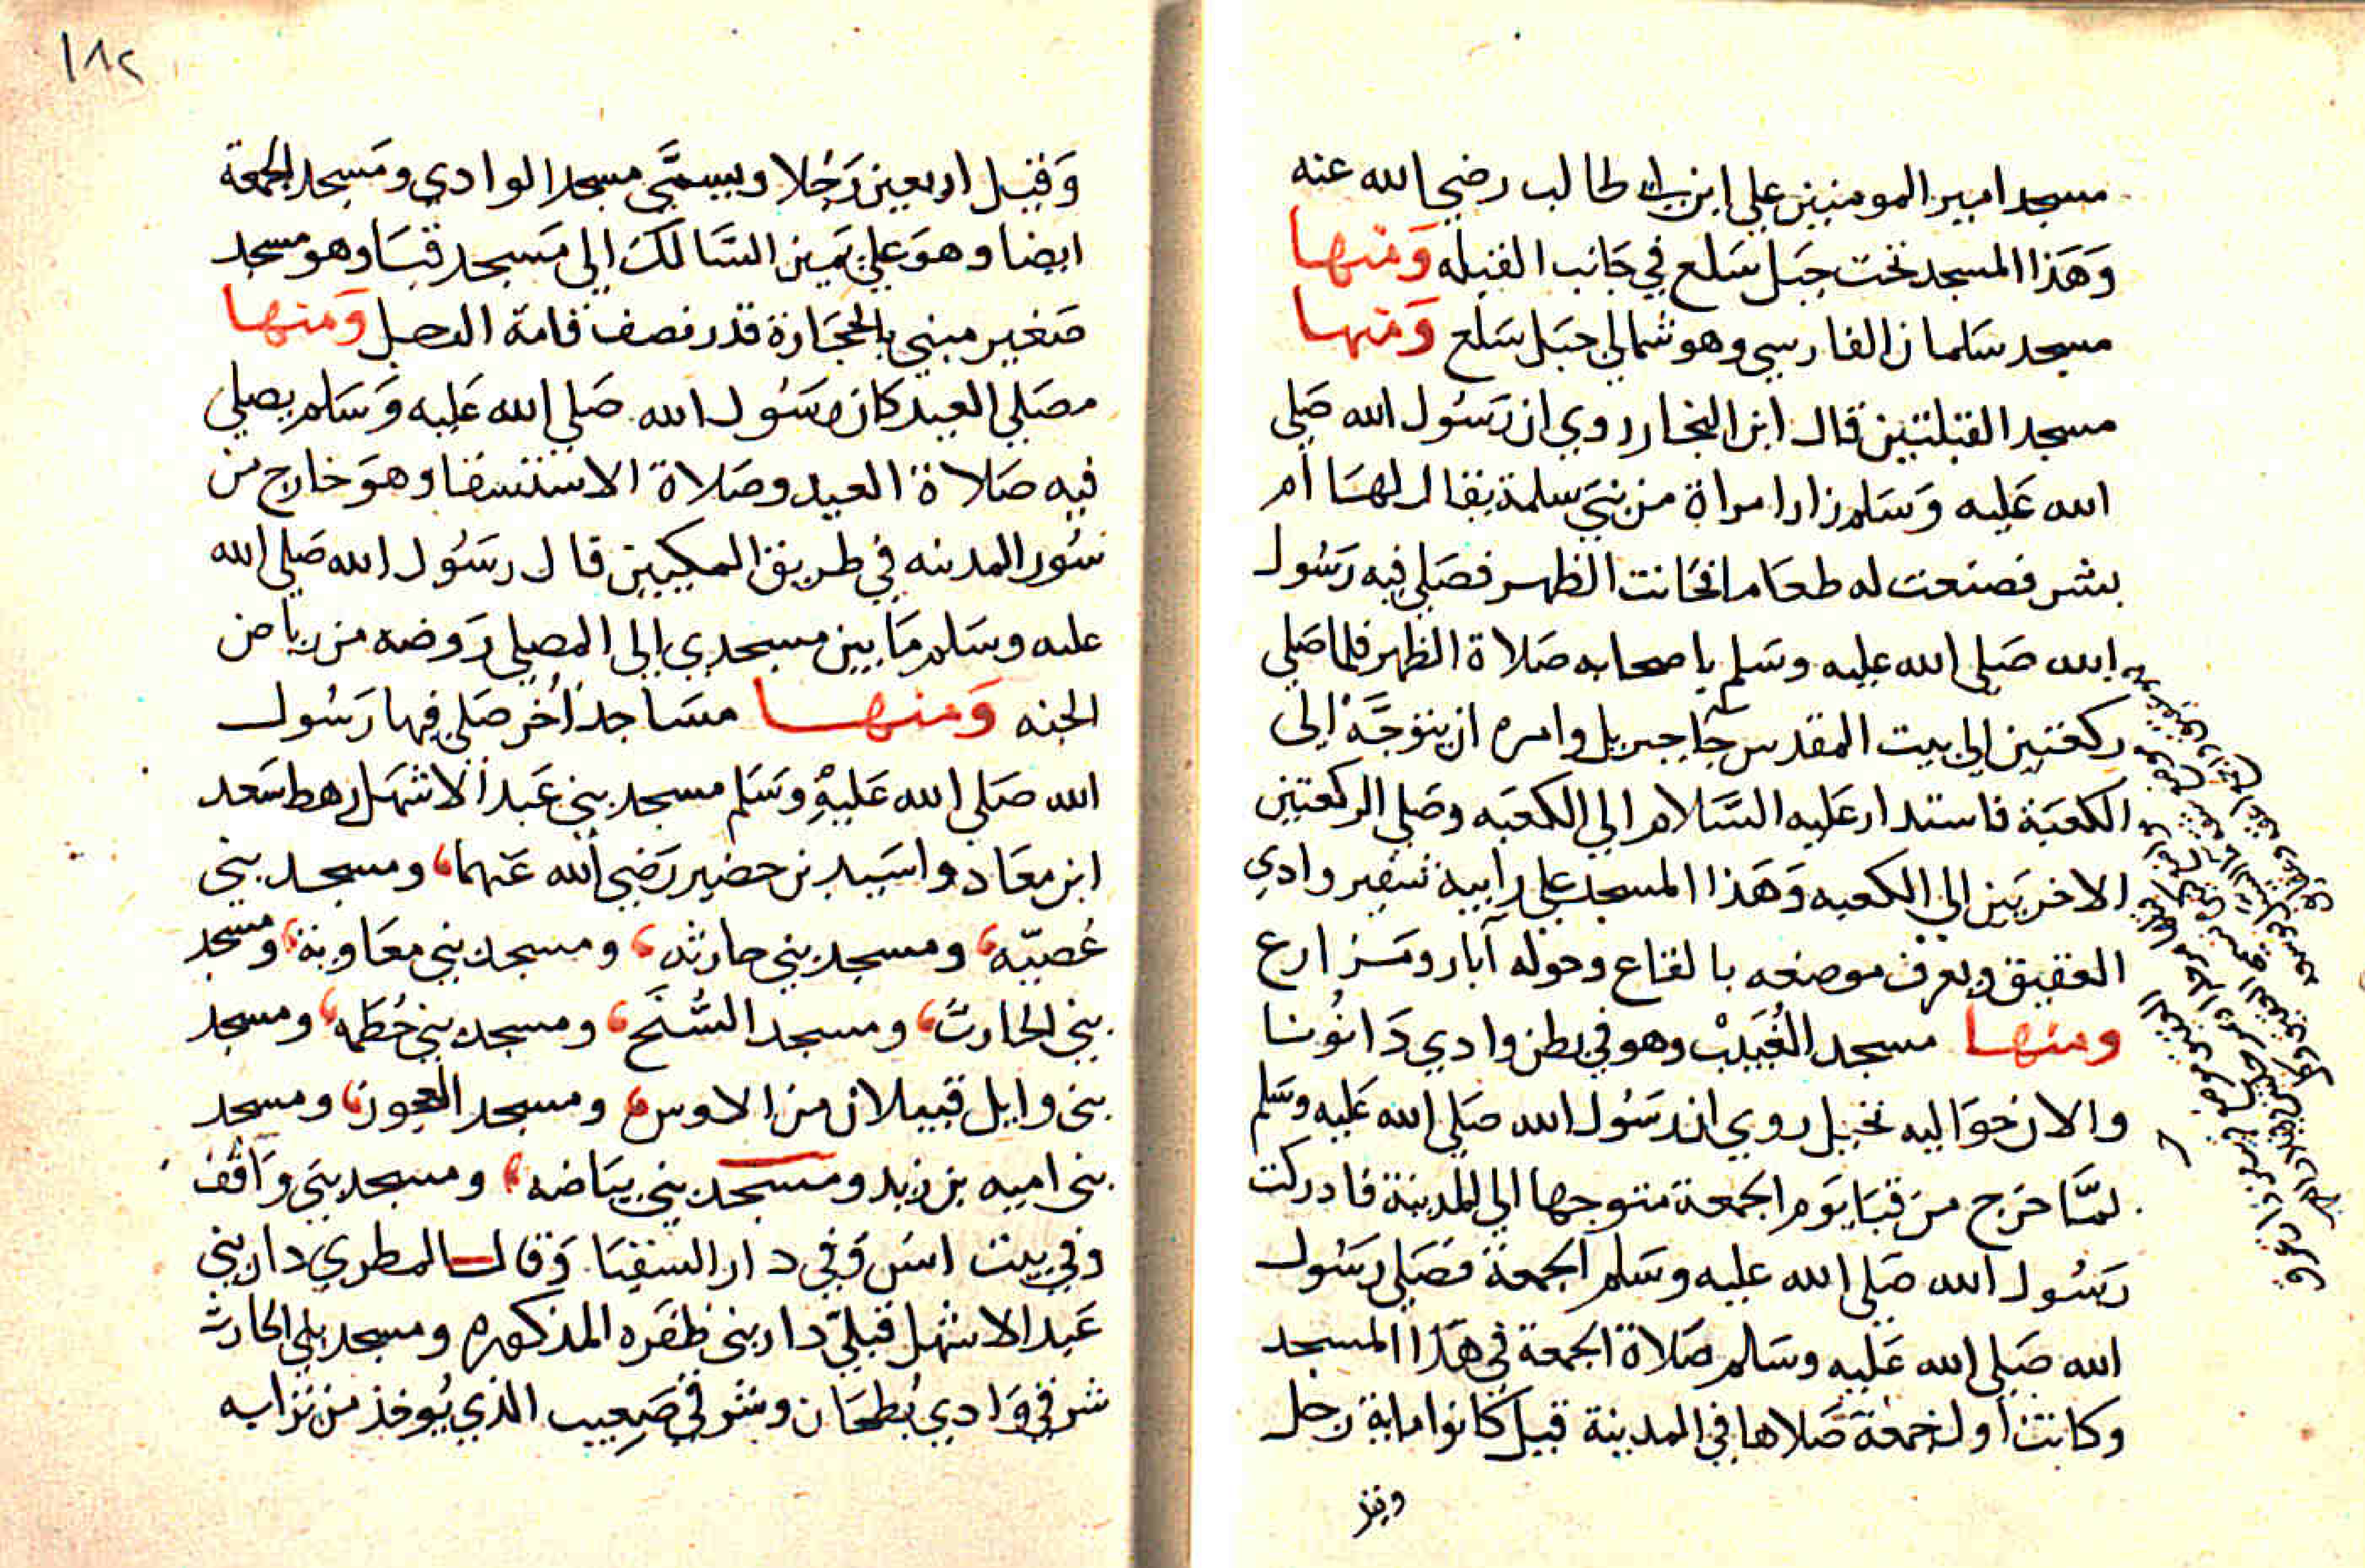 مسجد امير المومنين علي ابن ابي طالب رضي الله عنه
وَهَذا المسجد تحت جبَل سَلع في جَانب القبله وَمنها
مسجد سَلمان الفارسي وهو شمالي جبَل سَلع وَمنها
مسجد القبلتين قال ابن النجار روي ان رَسُول الله صَلي
الله عَليه وَسَلم زار امراة من بني سلمة يقال لهَا أم
بشر فصنعت له طعَاما فحَانت الظهر فصَلي فيه رَسُول
الله صَلي الله عليه وسَلم باصحابه صَلاة الظهر فلما صَلي
ركعتين الي بيت المقدس جَا جبريل وامره ان يتوجَّهَ الى
الكعبَة فاستدار عَليه السَّلام الي الكعبَه وصَلي الركعتين
الاخريَين الي الكعبه وَهَذا المسجد علي رابيه شفير وادي
العقيق ويعرف موضعه بالقاع وحوله آبار ومَزارع
ومنها مسجد الغُبَيبْ وهو في بطن وادي رَانُونا
والان حوَاليه نخيل روي ان رسُول الله صَلي الله عَليه وسَلم
لمَّا خرَج من قبَا يَوم الجمعة متوجها الي المدينة فادركت
رَسُول الله صَلي الله عليه وسَلم الجمعة فصَلي رسُول
الله صَلي الله عَليه وسَلم صَلاة الجمعة في هَذا المسجد
وكانت أول جمعَة صَلاها في المدينة قيل كانوا ماية رجل
وقيل
١٨٢
وَقيل اربعين رَجُلا ويسمَّي مسجد الوادي ومَسجد الجمعة
ايضا وهوَ علي يَمين السَّالك الي مَسجد قبَا وهو مسجد
صَغير مبني بالحجَارة قدر نصف قامة الرجل وَمنها
مصَلي العيد كان رسَُول الله صَلي الله عَليه وَسَلم يصلي
فيه صَلاة العيد وصَلاة الاستسقا وهوَ خارج من
سُور المدينه في طريق المكيين قال رسَُول الله صَلي الله
عليه وسَلم مَا بين مسجدي الي المصلي رَوضه من رياض
الجنه وَمنها مسَاجد أُخر صَلي فيها رَسُول
الله صَلي الله عَليهِ وسَلم مسجد بني عَبد الاشهَل رهط سَعد
ابن معَاد واسَيد بن حضير رَضي الله عَنهما، ومسجد بني
عُصيّه، ومسجد بني حارثه، ومسجد بني معَاوية، ومسجد
بني الحارث، ومسجد السُّنح، ومسجد بني خُطَمه، ومسجد
بني وايل قبيلان من الاوس، ومسجد العجوز، ومسجد
بني اميه بن زيد ومسجد بني بيَاضه، ومسجد بني وَاقف
وفي بيت انسَ وَفي دار السقيَا وَقال المطري دار بني
عَبد الاشهل قبليّ دار بني ظفَره المذكوره ومسجد بني الحارث
شرقي وَادي بُطحَان وشرقي صَعِيب الذي يُوخذ من ترابه